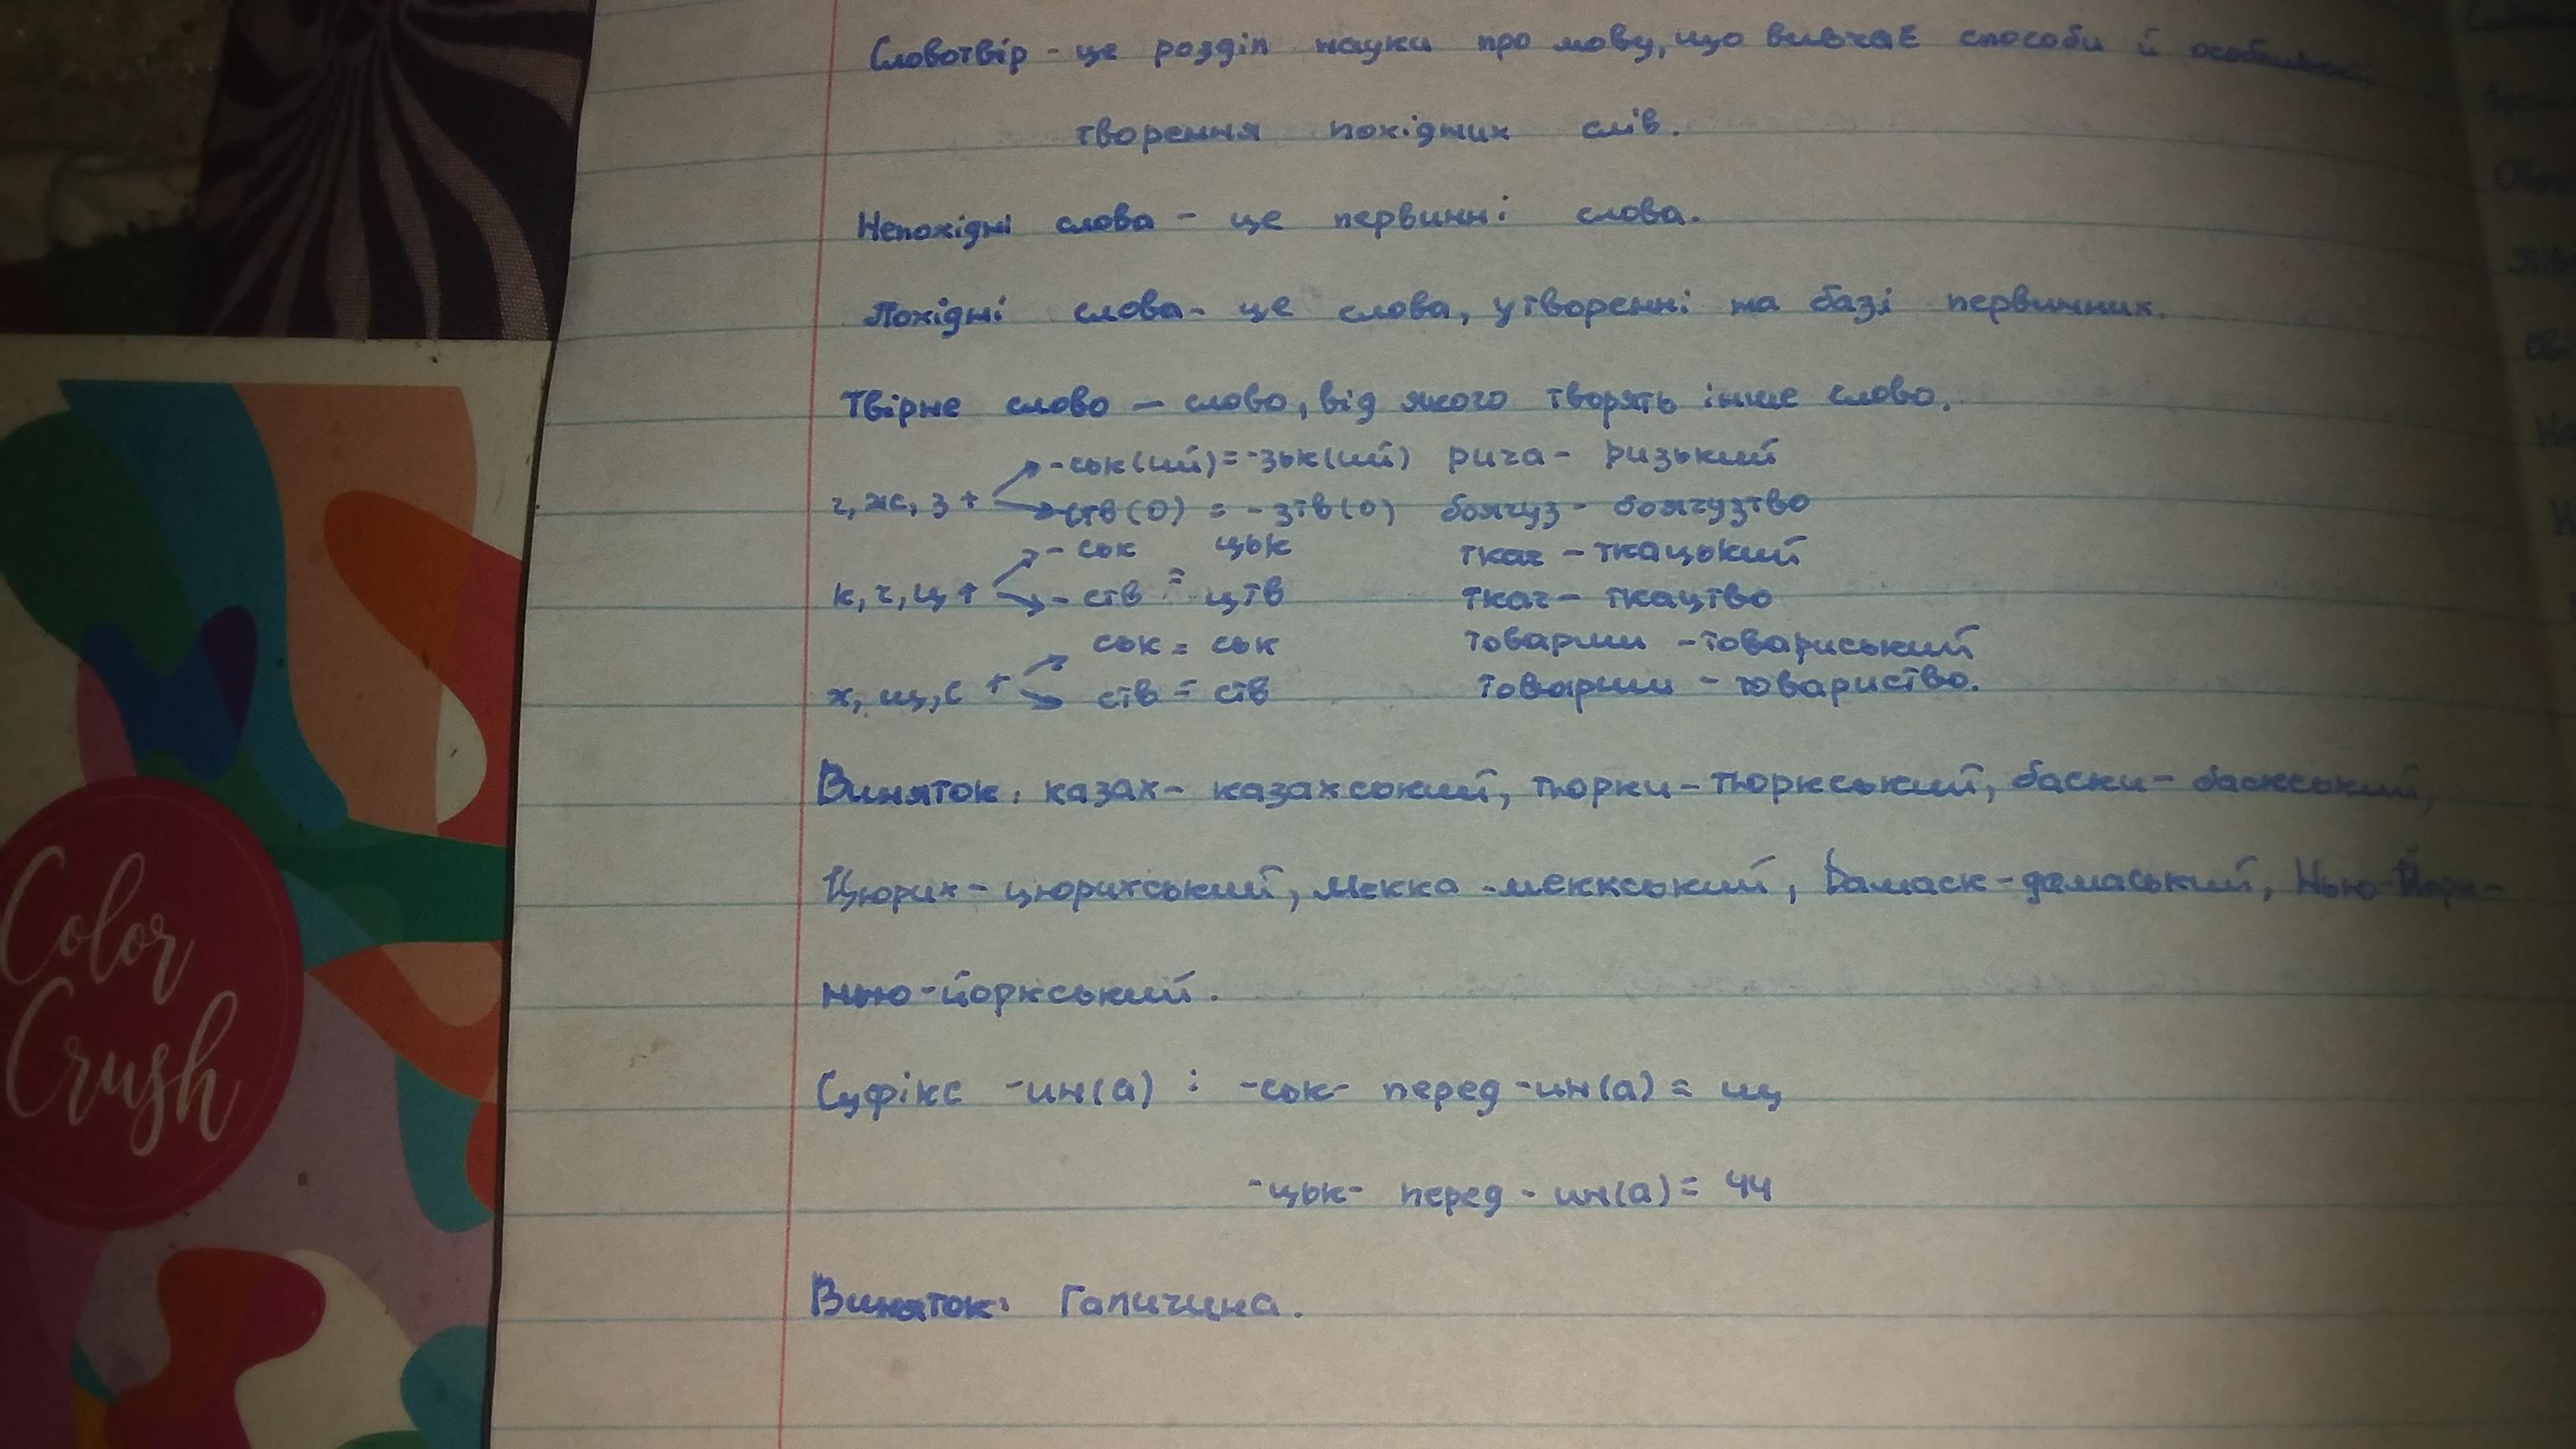 Словотвір - це розділ науки про мову, що вивчає способи й
творення похідних слів.
Непохідні слова - це первинні слова.
Похідні слова - це слова, утворенні на базі первинних.
Твірне слово - слово, від якого творять інше слово.
-ськ(ий) = -зьк(ий) рига - ризький
г, ж, з + ств(о) = -зтв(о) боягуз - боягузтво
-ськ цьк ткач - ткацький
к, ч, ц + -ств = цтв ткач - ткацтво
ськ = ськ товариш - товариський
х, ш, с + ств = ств товариш - товариство.
Виняток: казах - казахський, тюрки - тюркський, баски - баскський,
Цюрих - цюрихський, Мекка - меккський, Дамаск - дамаський, Нью-Йорк -
нью-йоркський.
Суфікс -ин(а) : -ськ- перед -ин(а) = щ
-цьк- перед -ин(а) = чч
Виняток: Галичина.
Color
Crush